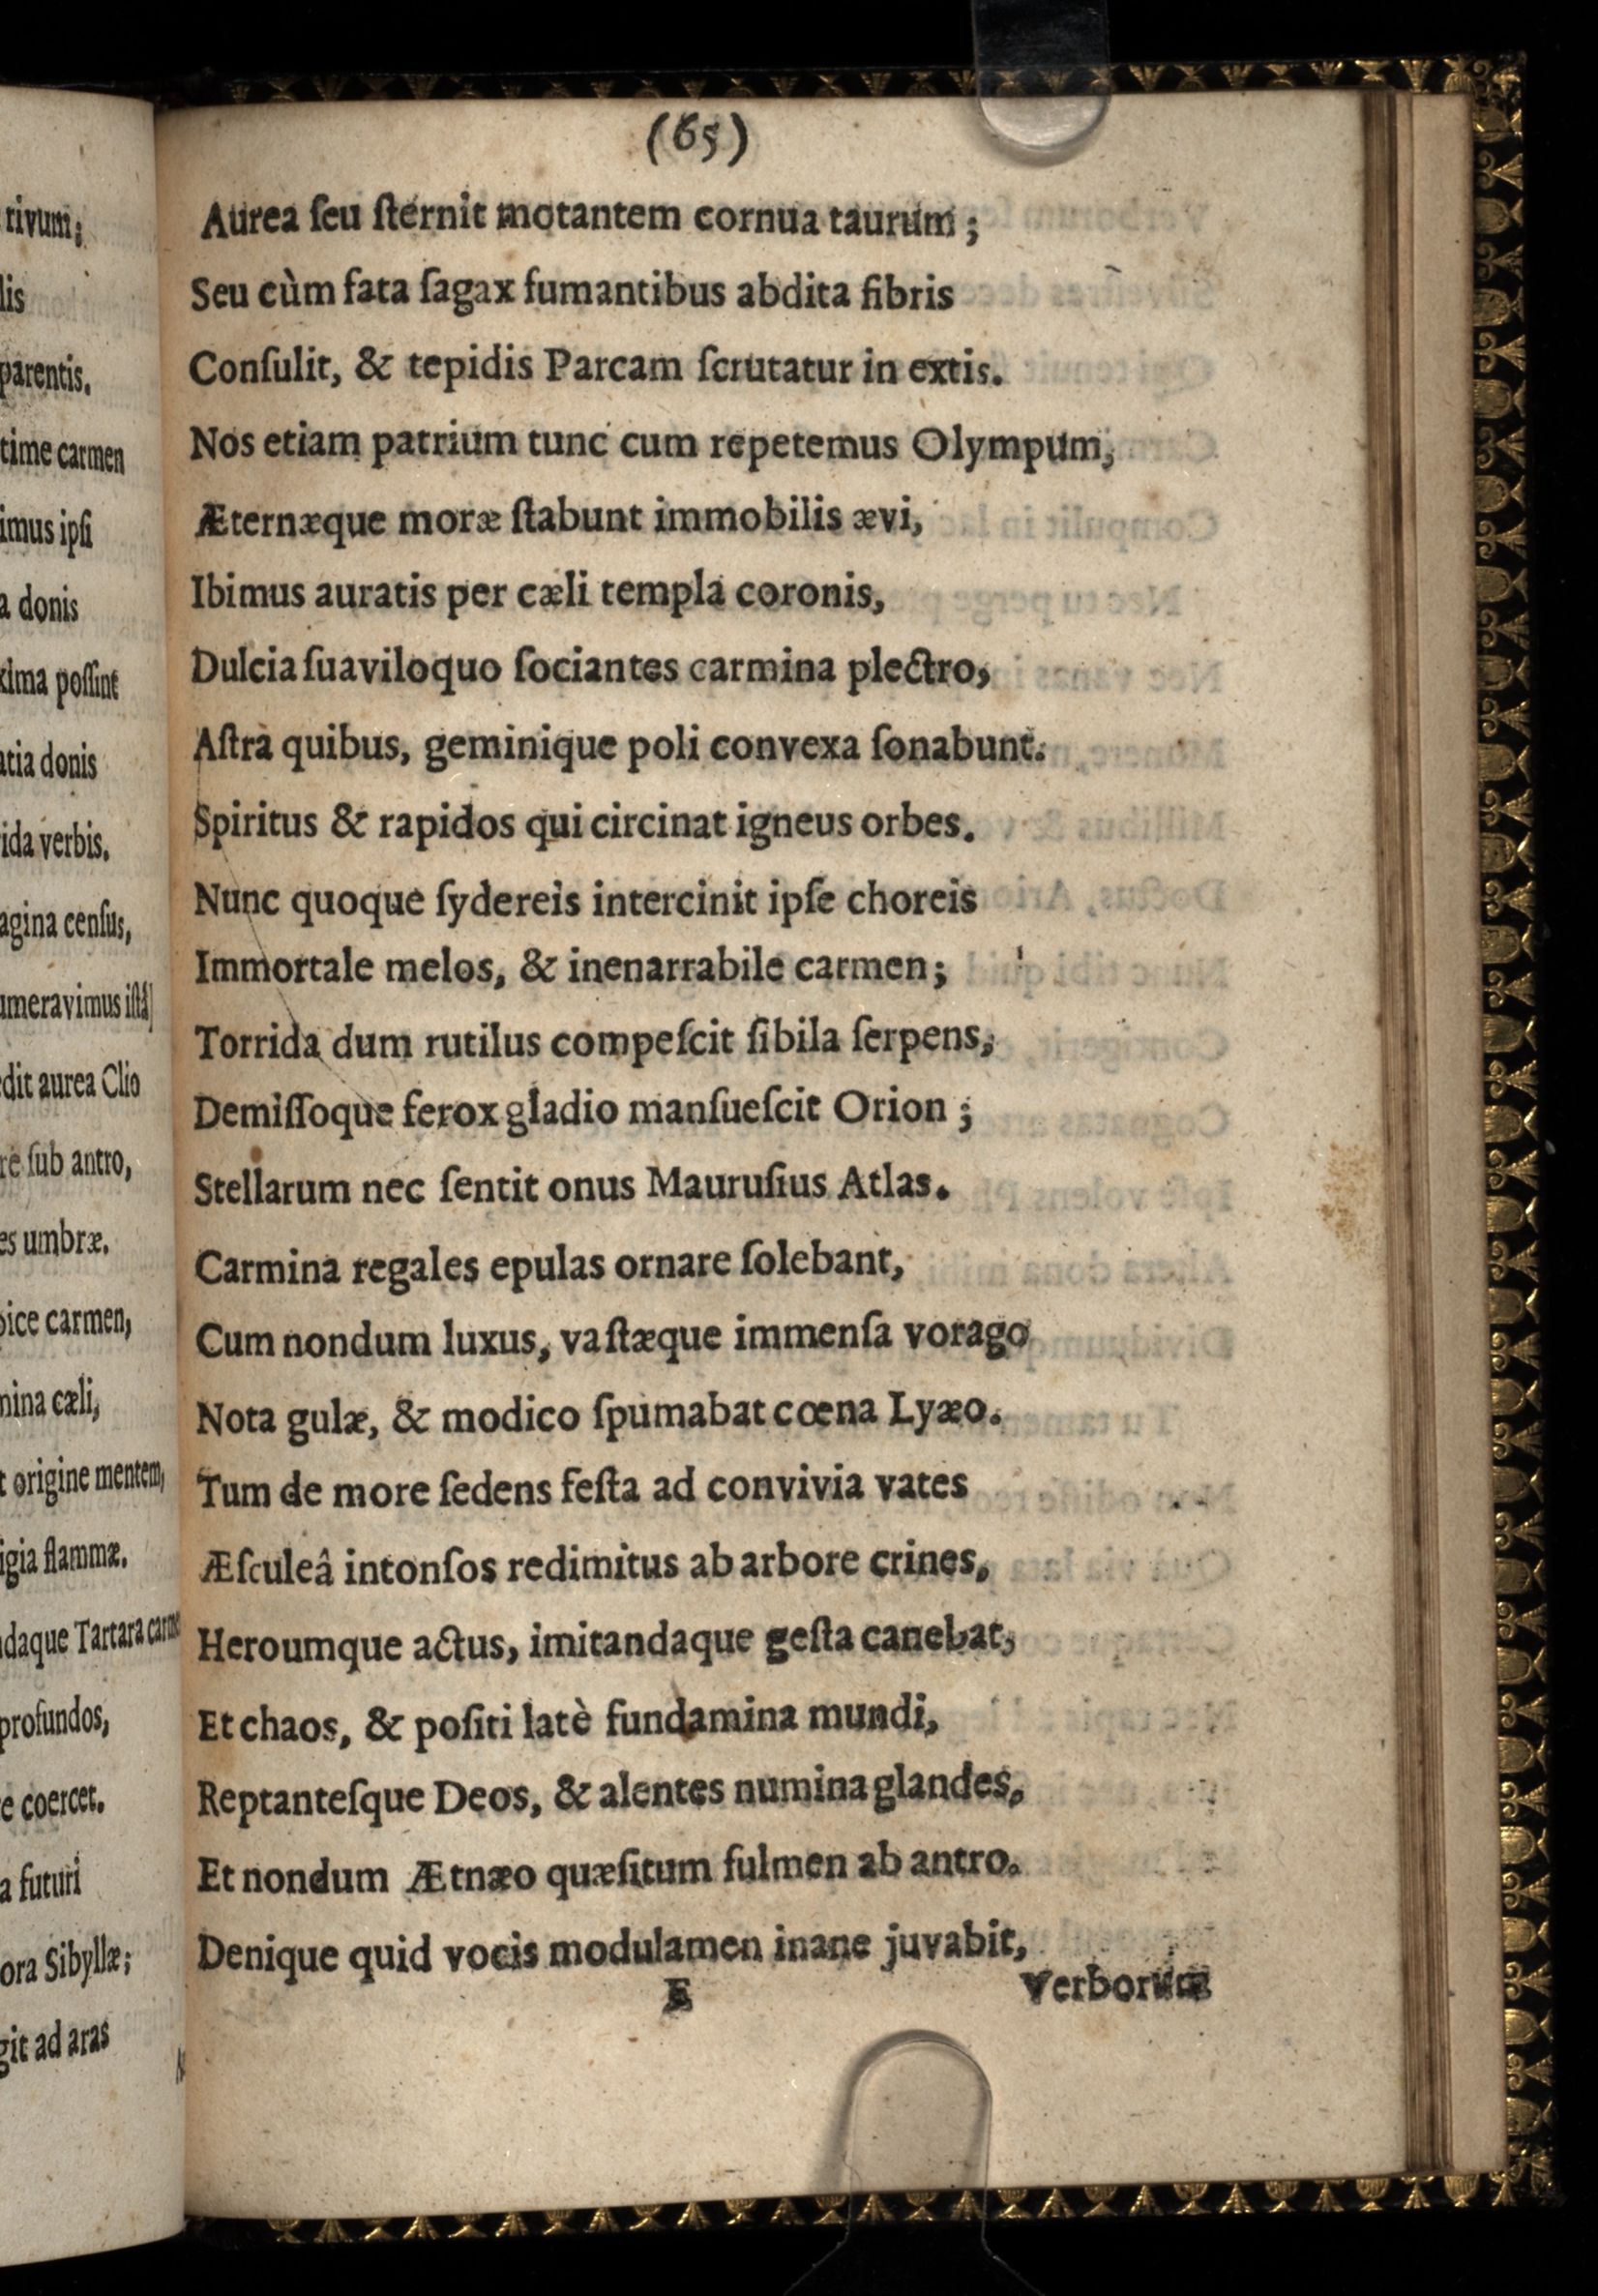 rivum;
lis
parentis.
time carmen
imus ipſi
a donis
xima poſſint
atia donis
ida verbis.
agina cenſus,
umeravimus iſtâ)
dit aurea Clio
re ſub antro,
es umbræ.
pice carmen,
mina cæli,
t origine mentem,
igia flammæ.
ndaque Tartara carme
profundos,
e coercet.
a futuri
ora Sibyllæ;
git ad aras
(65)
Aurea ſeu ſternit motantem cornua taurum;
Seu cùm fata ſagax fumantibus abdita fibris
Conſulit, & tepidis Parcam ſcrutatur in extis.
Nos etiam patrium tunc cum repetemus Olympum,
Æternæque moræ ſtabunt immobilis ævi,
Ibimus auratis per cæli templa coronis,
Dulcia ſuaviloquo ſociantes carmina plectro,
Aſtra quibus, geminique poli convexa ſonabunt.
Spiritus & rapidos qui circinat igneus orbes.
Nunc quoque ſydereis intercinit ipſe choreis
Immortale melos, & inenarrabile carmen;
Torrida dum rutilus compeſcit ſibila ſerpens,
Demiſſoque ferox gladio manſueſcit Orion;
Stellarum nec ſentit onus Mauruſius Atlas.
Carmina regales epulas ornare ſolebant,
Cum nondum luxus, vaſtæque immenſa vorago
Nota gulæ, & modico ſpumabat cœna Lyæo.
Tum de more ſedens feſta ad convivia vates
Æſculeâ intonſos redimitus ab arbore crines,
Heroumque actus, imitandaque geſta canebat,
Et chaos, & poſiti latè fundamina mundi,
Reptanteſque Deos, & alentes numina glandes,
Et nondum Ætnæo quæſitum fulmen ab antro.
Denique quid vocis modulamen inane juvabit,
E Verborum